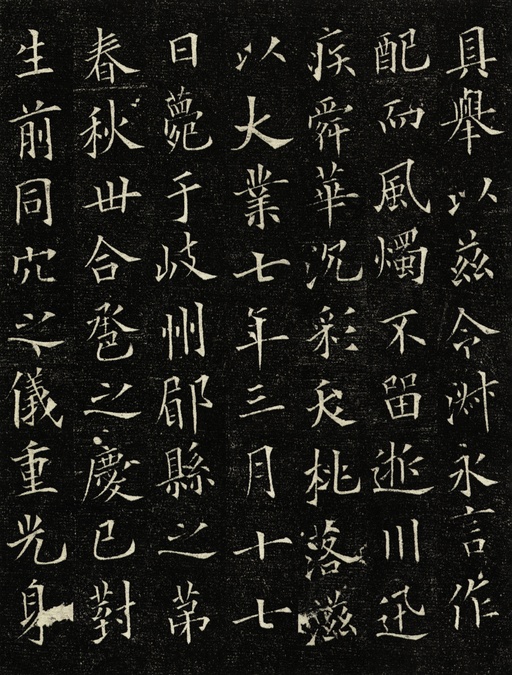 具舉以茲令淑永言作
配而風燭不留逝川迅
疾舜華沉彩夭桃落滋
以大業七年三月十七
日薨于岐州郿縣之苐
春秋丗合巹之慶已對
生前同穴之儀重光身